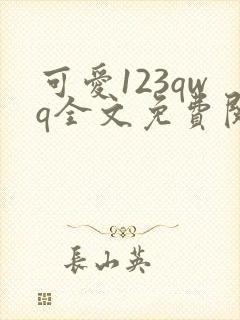 可愛123qw
q全文免費閱
長山英